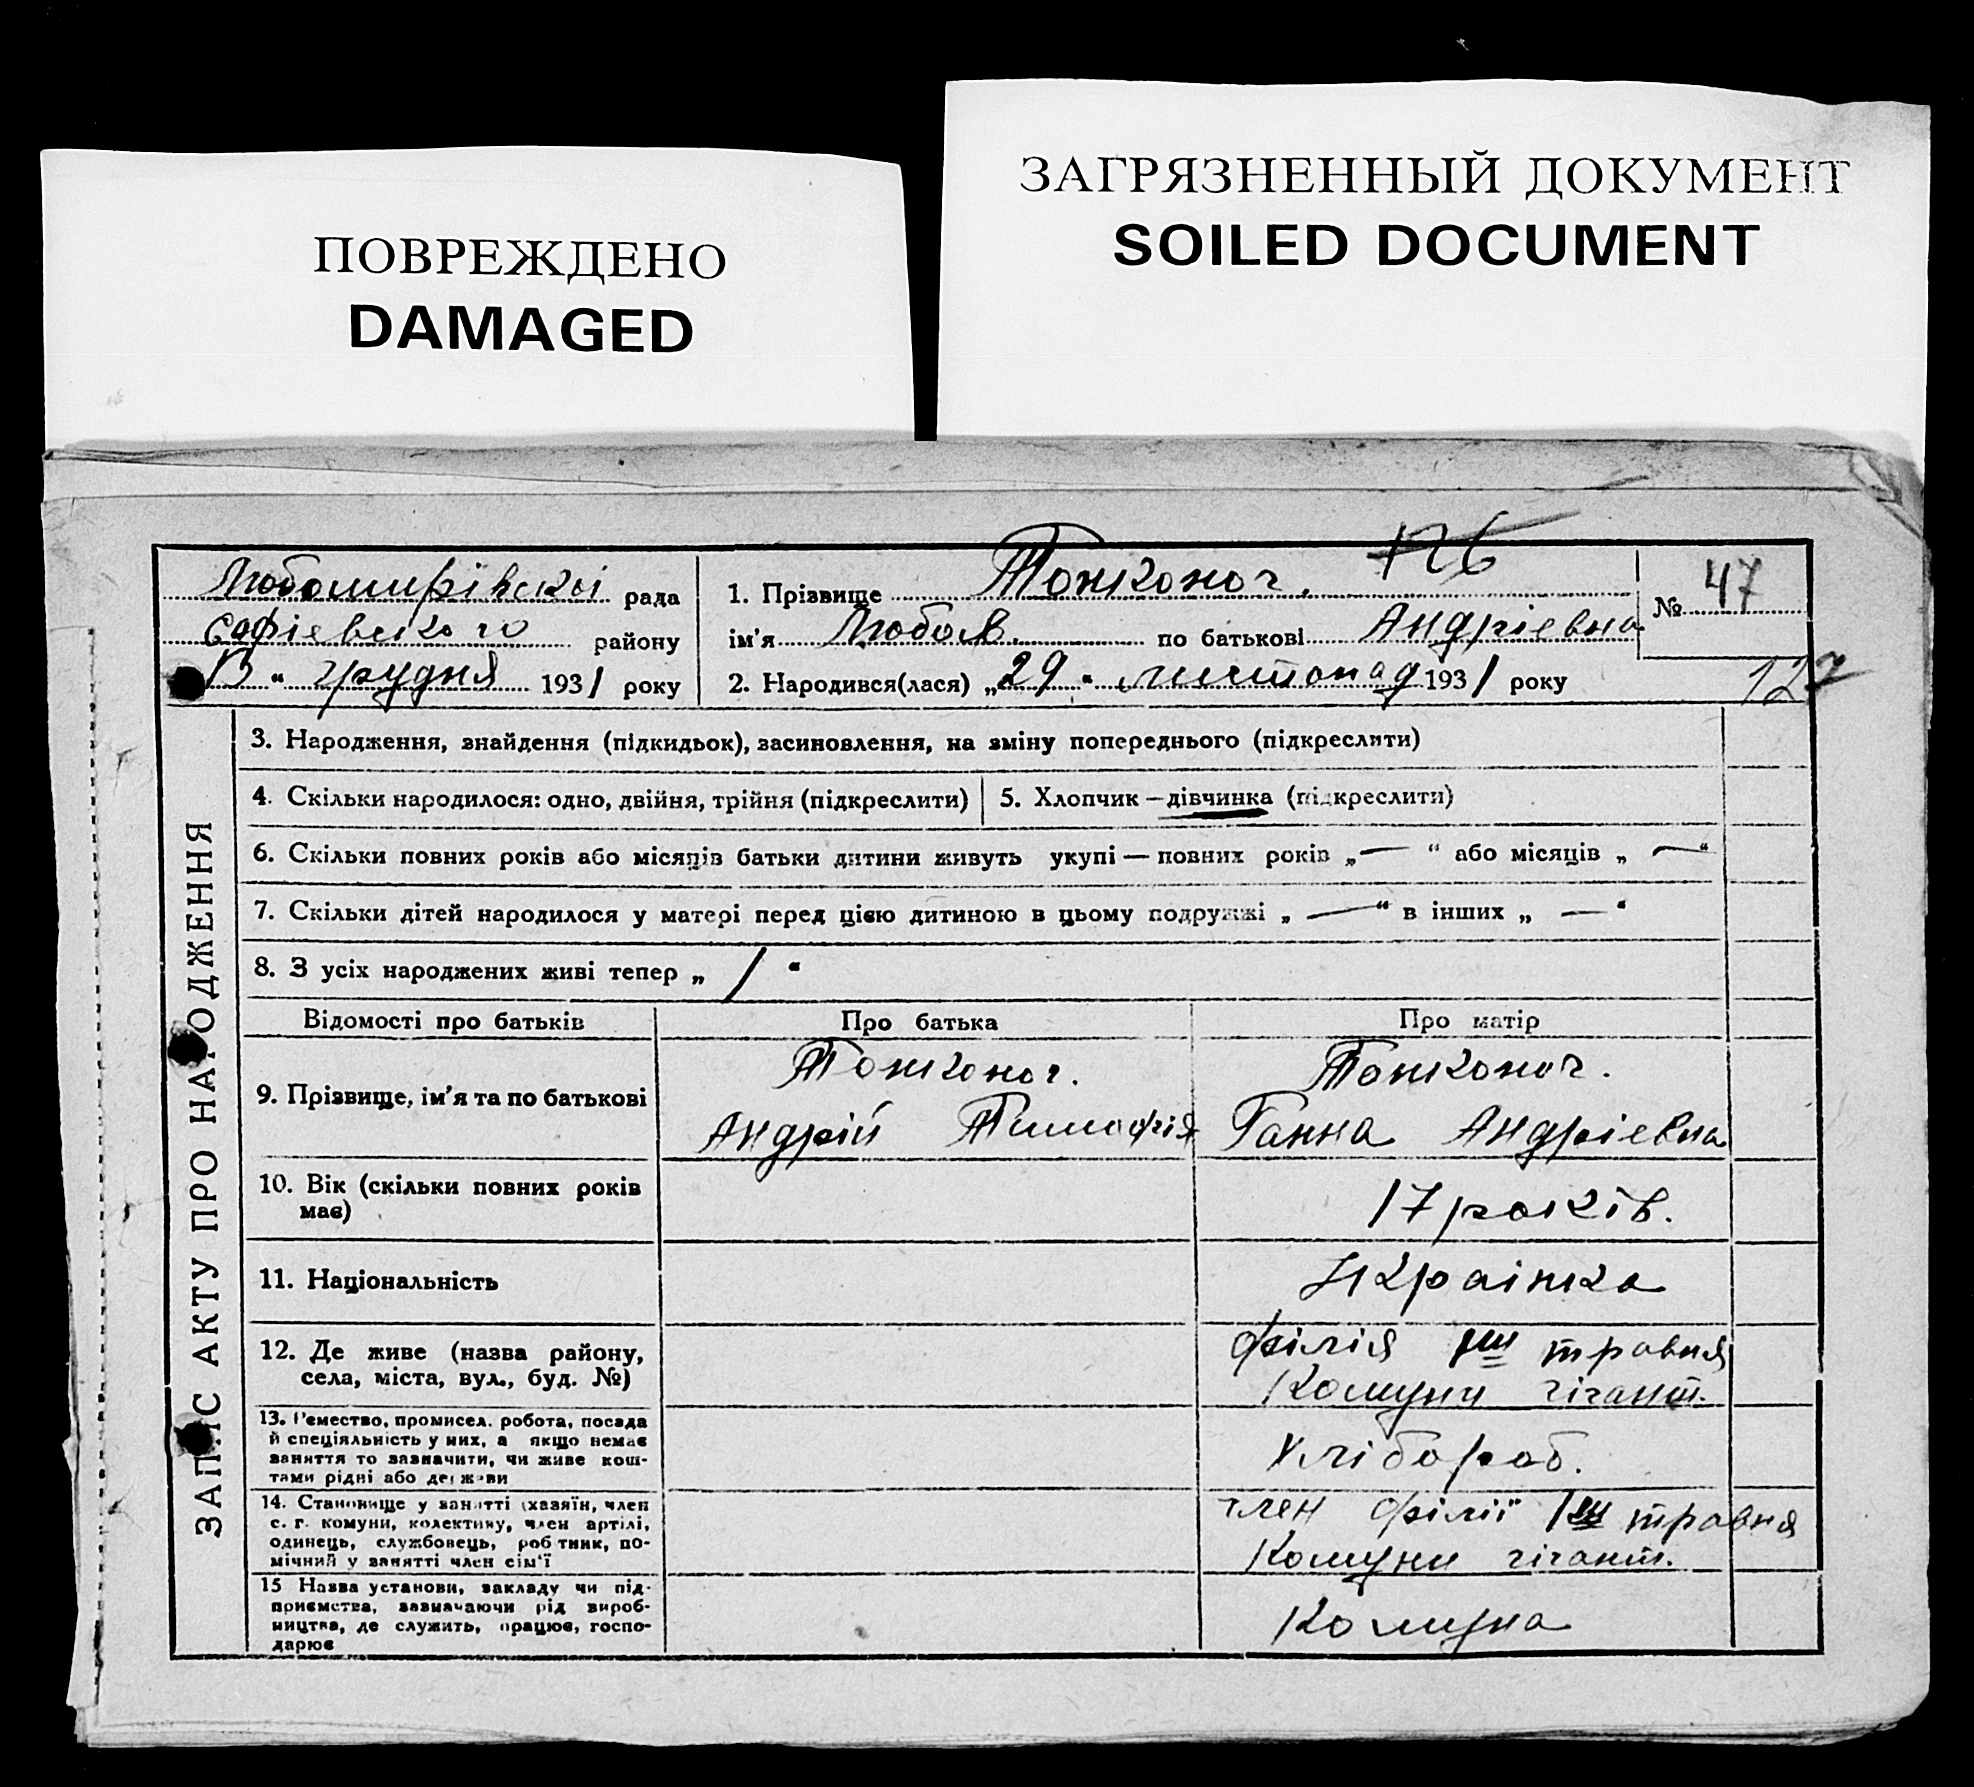 ПОВРЕЖДЕНО
DAMAGED
ЗАГРЯЗНЕННЫЙ ДОКУМЕНТ
SOILED DOCUMENT
126
Любомирівскої рада
Софіевского району
13 " грудня 1931 року
1. Прізвище Тонконог.
ім'я Любов. по батькові Андріевна
2. Народився(лася) „29 " листопад 1931 року
№ 47
127
ЗАПИС АКТУ ПРО НАРОДЖЕННЯ
3. Народження, знайдення (підкидьок), засиновлення, на зміну попереднього (підкреслити)
4. Скільки народилося: одно, двійня, трійня (підкреслити)
5. Хлопчик — дівчинка (підкреслити)
6. Скільки повних років або місяців батьки дитини живуть укупі — повних років „ — " або місяців „ — "
7. Скільки дітей народилося у матері перед цією дитиною в цьому подружжі „ — " в інших „ — "
8. З усіх народжених живі тепер „ 1 "
Відомості про батьків
Про батька
Про матір
9. Прізвище, ім'я та по батькові
Тонконог.
Андрій Тимофія
Тонконог.
Ганна Андріевна
10. Вік (скільки повних років
має)
17 років.
11. Національність
Украінка
12. Де живе (назва району,
села, міста, вул., буд. №)
філія 1ш травня
Комуни гігант.
13. Ремество, промисел, робота, посада
й спеціяльність у них, а якщо немає
заняття то зазначити, чи живе кош-
тами рідні або держави
Хлібороб.
14. Становище у занятті (хазяїн, член
с. г. комуни, колективу, член артілі,
одинець, службовець, робітник, по-
мічний у занятті член сім'ї
член філії 1ш травня
Комуни гігант.
15 Назва установи, закладу чи під-
приємства, зазначаючи рід вироб-
ництва, де служить, працює, госпо-
дарює
Комуна